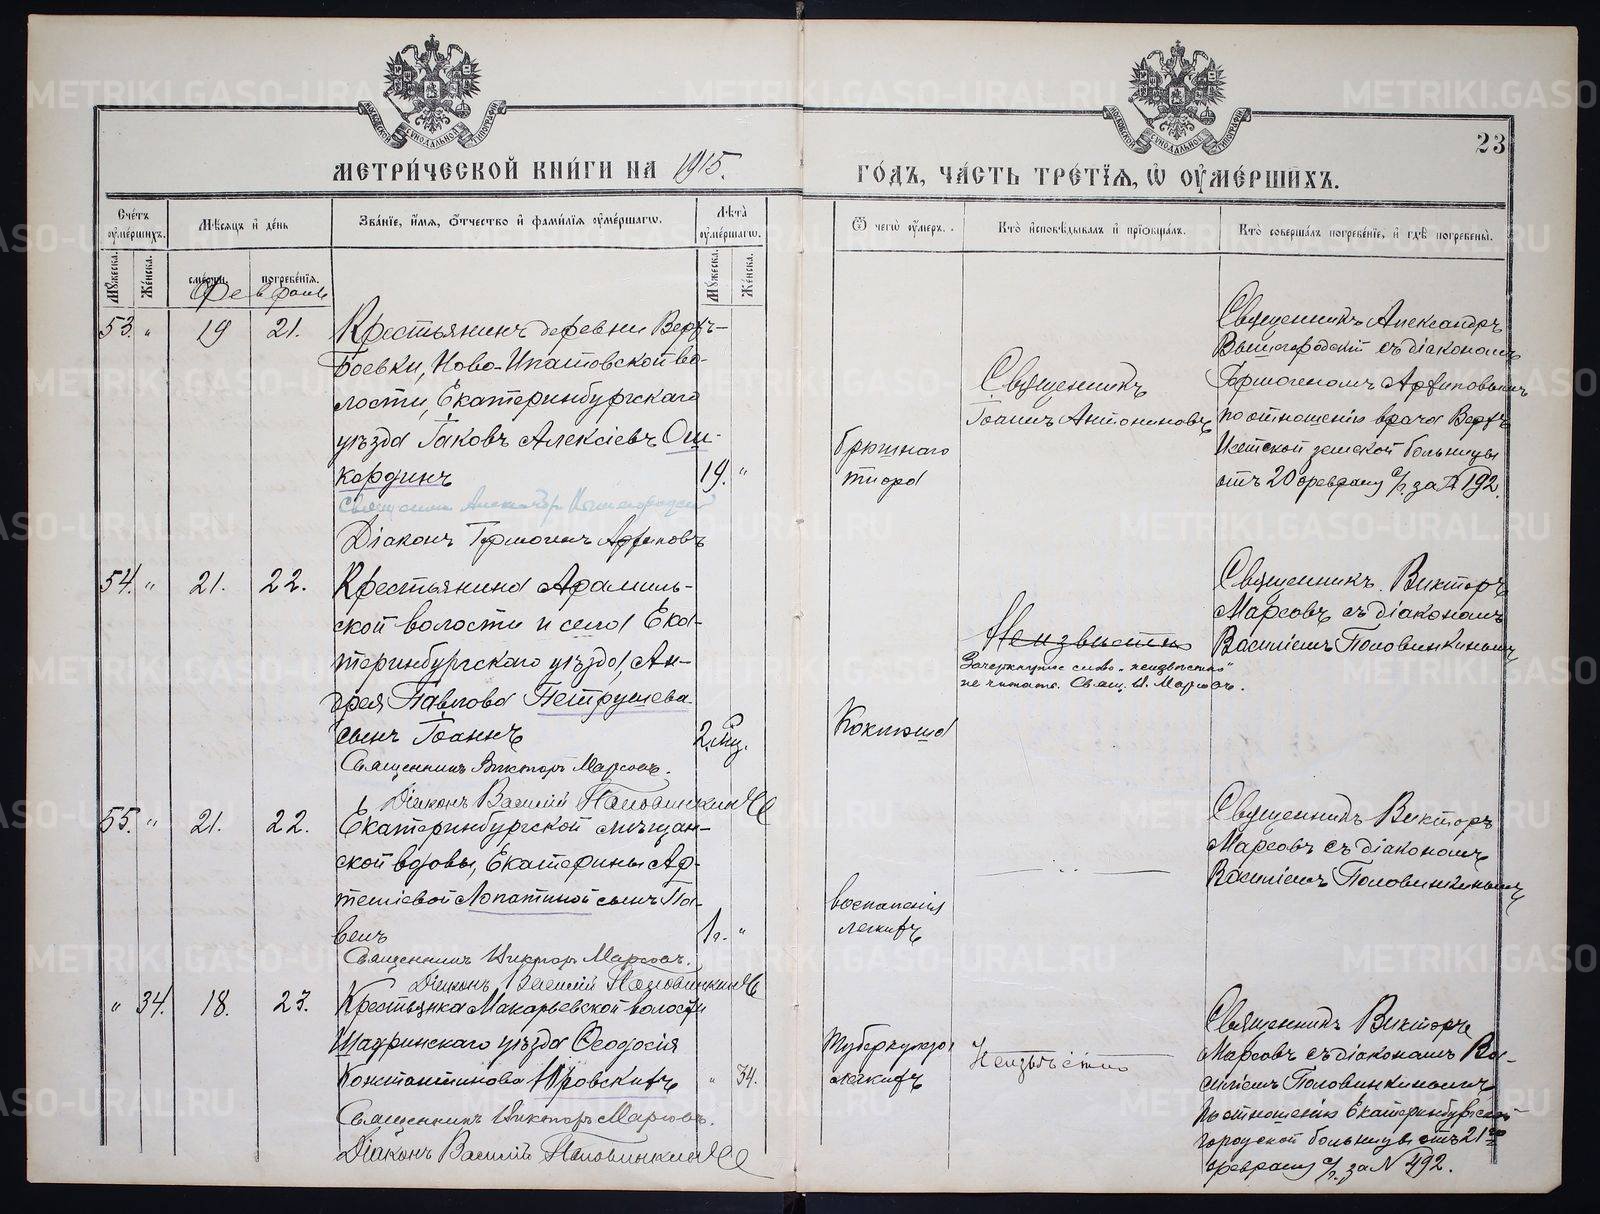 МЕТРИ́ЧЕСКОЙ КНИ́ГИ НА 1915.
ГО́ДЪ, ЧА́СТЬ ТРЕ́ТЇЯ, Ѡ ОУМЕ́РШИХЪ.
23
Сче́тъ оуме́ршихъ.
Мѣсяцъ и де́нь
Зва́нїе, и́мя, ѻ́тчество и фами́лїя оуме́ршагѡ.
Лѣта̀ оуме́ршагѡ.
Ѿ чегѡ̀ оу́меръ.
Кто̀ и҆сповѣ́дывалъ и҆ прїѡбща́лъ.
Кто̀ соверша́лъ погребе́нїе, и҆ гдѣ̀ погребены̀.
Мꙋ́жеска.
Же́нска.
сме́рти.
погребе́нїя.
Мꙋ́жеска.
Же́нска.
Февраль
53. "
19
21.
Крестьянинъ деревни Верхъ-
Боевки, Ново-Ипатовской во-
лости, Екатеринбургскаго
уѣзда Іаковъ Алексіевъ Ош-
кординъ
19. "
Священникъ Александръ Вышегородскій
Діаконъ Гермогенъ Арфиповъ
брюшнаго
тифа
Священникъ
Іоаннъ Антониновъ
Священникъ Александръ
Вышегородскій съ діакономъ
по отношенію врача Верхъ
Исетской земской больницы
отъ 20 февраля с/г за № 192.
54. "
21.
22.
Крестьянина Арамиль-
ской волости и села Ека-
теринбургскаго уѣзда, Ан-
дрея Павлова Петрушева
сынъ Іоаннъ
2. мц.
Священникъ Викторъ Марсовъ.
Діаконъ Василій Половинкинъ
Коклюша
Неизвѣстно
Зачеркнутое слово „неизвѣстно"
не читать. Свящ. В. Марсовъ.
Священникъ Викторъ
Марсовъ съ діакономъ
Василіемъ Половинкинымъ
55. "
21.
22.
Екатеринбургской мѣщан-
ской вдовы, Екатерины Ар-
теміевой Лопатиной сынъ Па-
велъ
1 г. "
Священникъ Викторъ Марсовъ.
Діаконъ Василій Половинкинъ
воспаленія
легкихъ
Священникъ Викторъ
Марсовъ съ діакономъ
Василіемъ Половинкинымъ
" 34.
18.
23.
Крестьянка Макарьевской волости
Шадринскаго уѣзда Ѳеодосія
Константинова
" 34.
Священникъ Викторъ Марсовъ.
Діаконъ Василій Половинкинъ
Туберкулеза
легкихъ
Неизвѣстно
Священникъ Викторъ
Марсовъ съ діакономъ Ва-
силіемъ Половинкинымъ
По отношенію Екатеринбургской
городской больницы отъ 21го
февраля с/г. за № 492.
METRIKI.GASO-URAL.RU